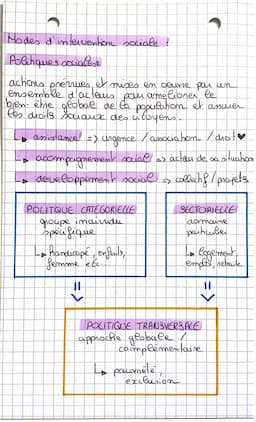 Modes d'intervention sociale :
Politiques sociales:
actions prévues et mises en oeuvre par un
ensemble d'acteurs pour améliorer le
bien-être globale de la population et assurer
les droits sociaux des citoyens.
↳ assistance => urgence / association / droit ♥
↳ accompagnement social => acteur de sa situation
↳ développement social => collectif / projets
POLITIQUE CATÉGORIELLE
groupe individu
spécifique
↳ handicapé, enfants,
femme etc...
SECTORIELLE
domaine
particulier
↳ logement,
emploi, retraite
POLITIQUE TRANSVERSALE
approche globale /
complémentaire
↳ pauvreté,
exclusion